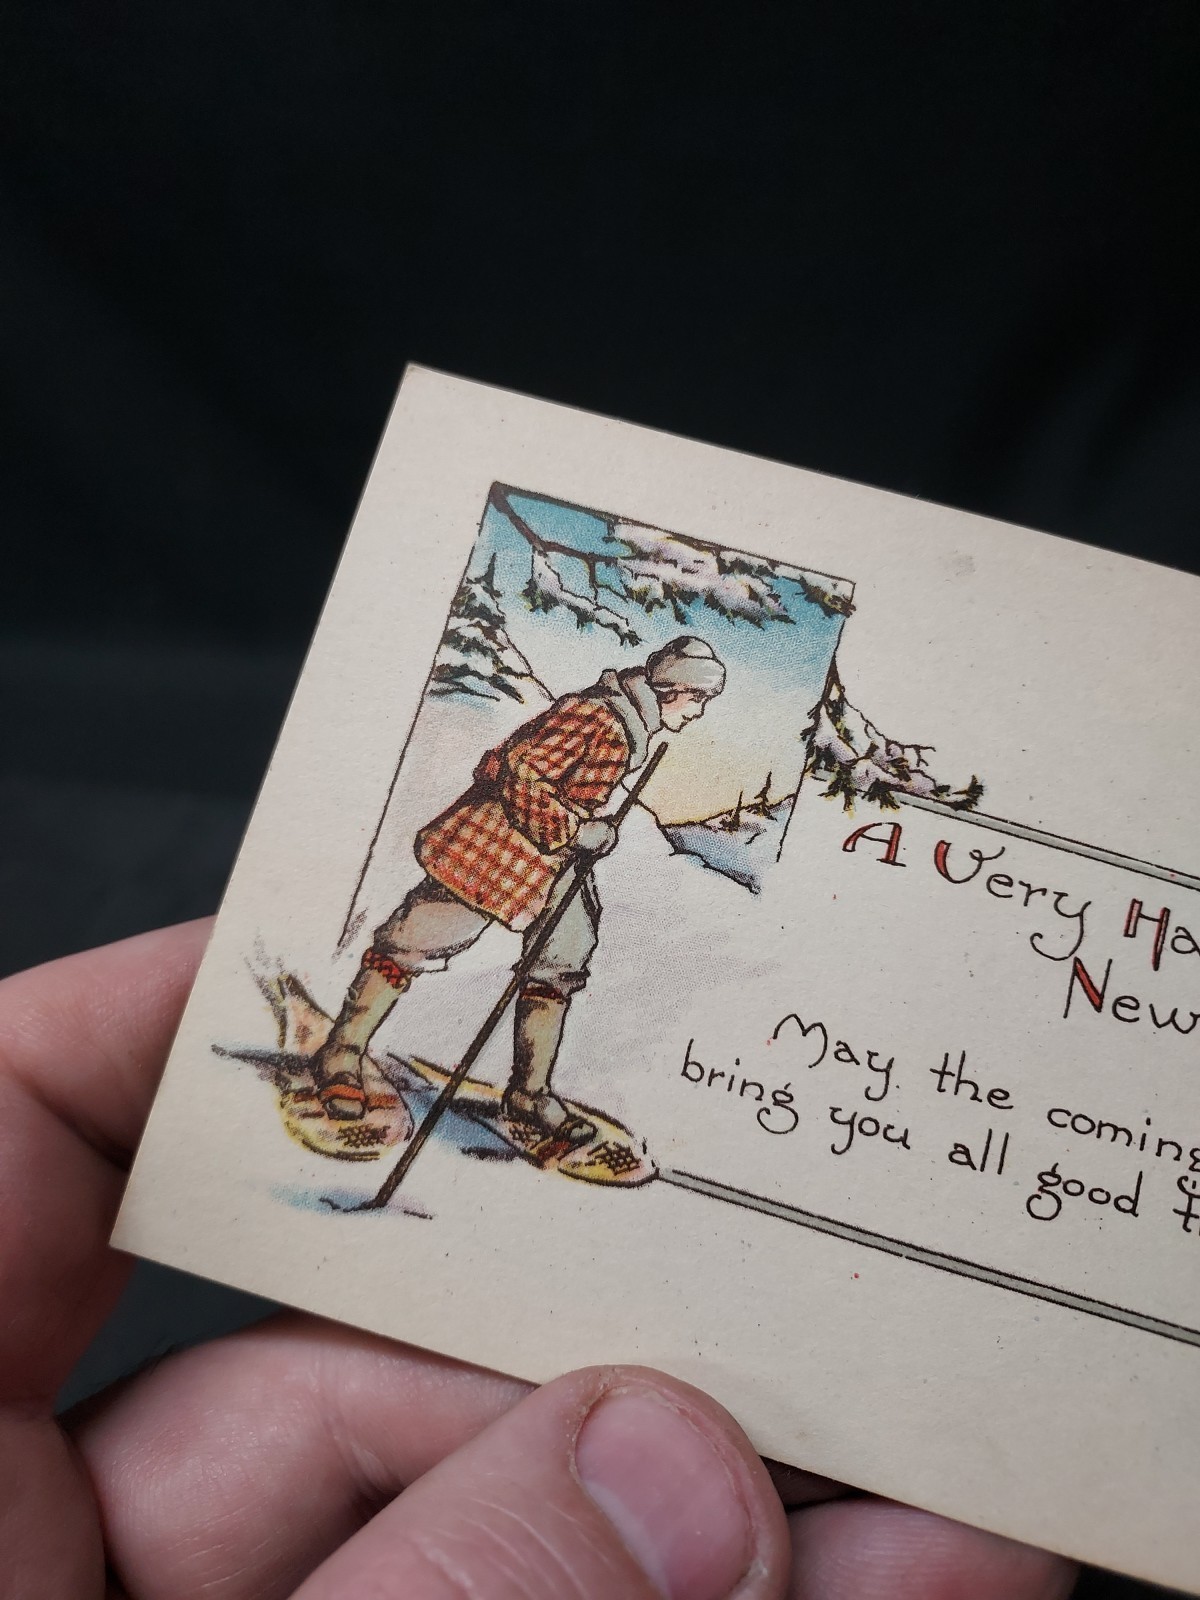 A Very
New
May the coming
bring you all good